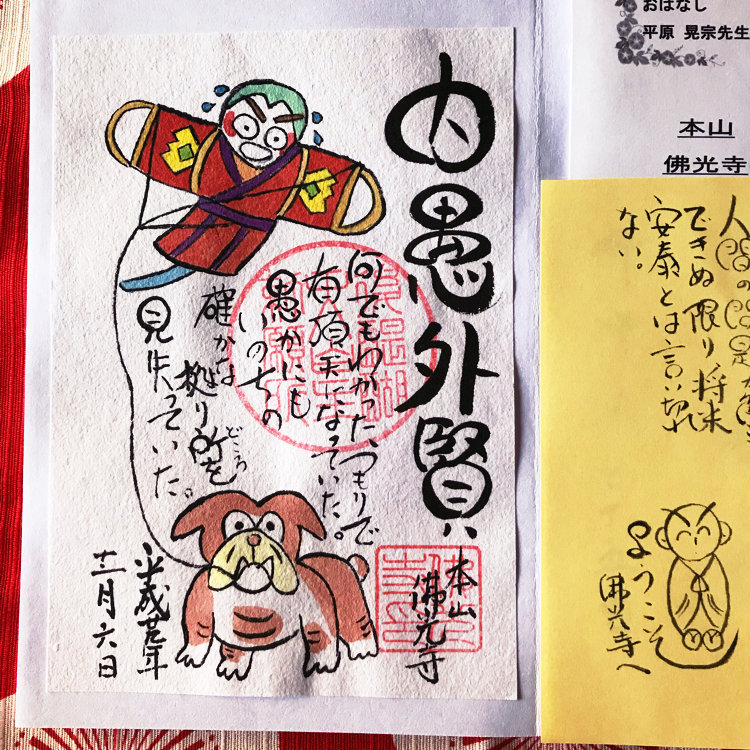 内愚外賢
何でもわかったつもりで
有頂天になっていた。
愚かにも
いのちの
確かな
拠り所を
どころ
見失っていた。
本山
佛光寺
平成卅年
十二月六日
おはなし
平原 晃宗先生
本山
佛光寺
人間の問題
できぬ限り将来
安泰とは言い切れ
ない。
ようこそ
佛光寺へ